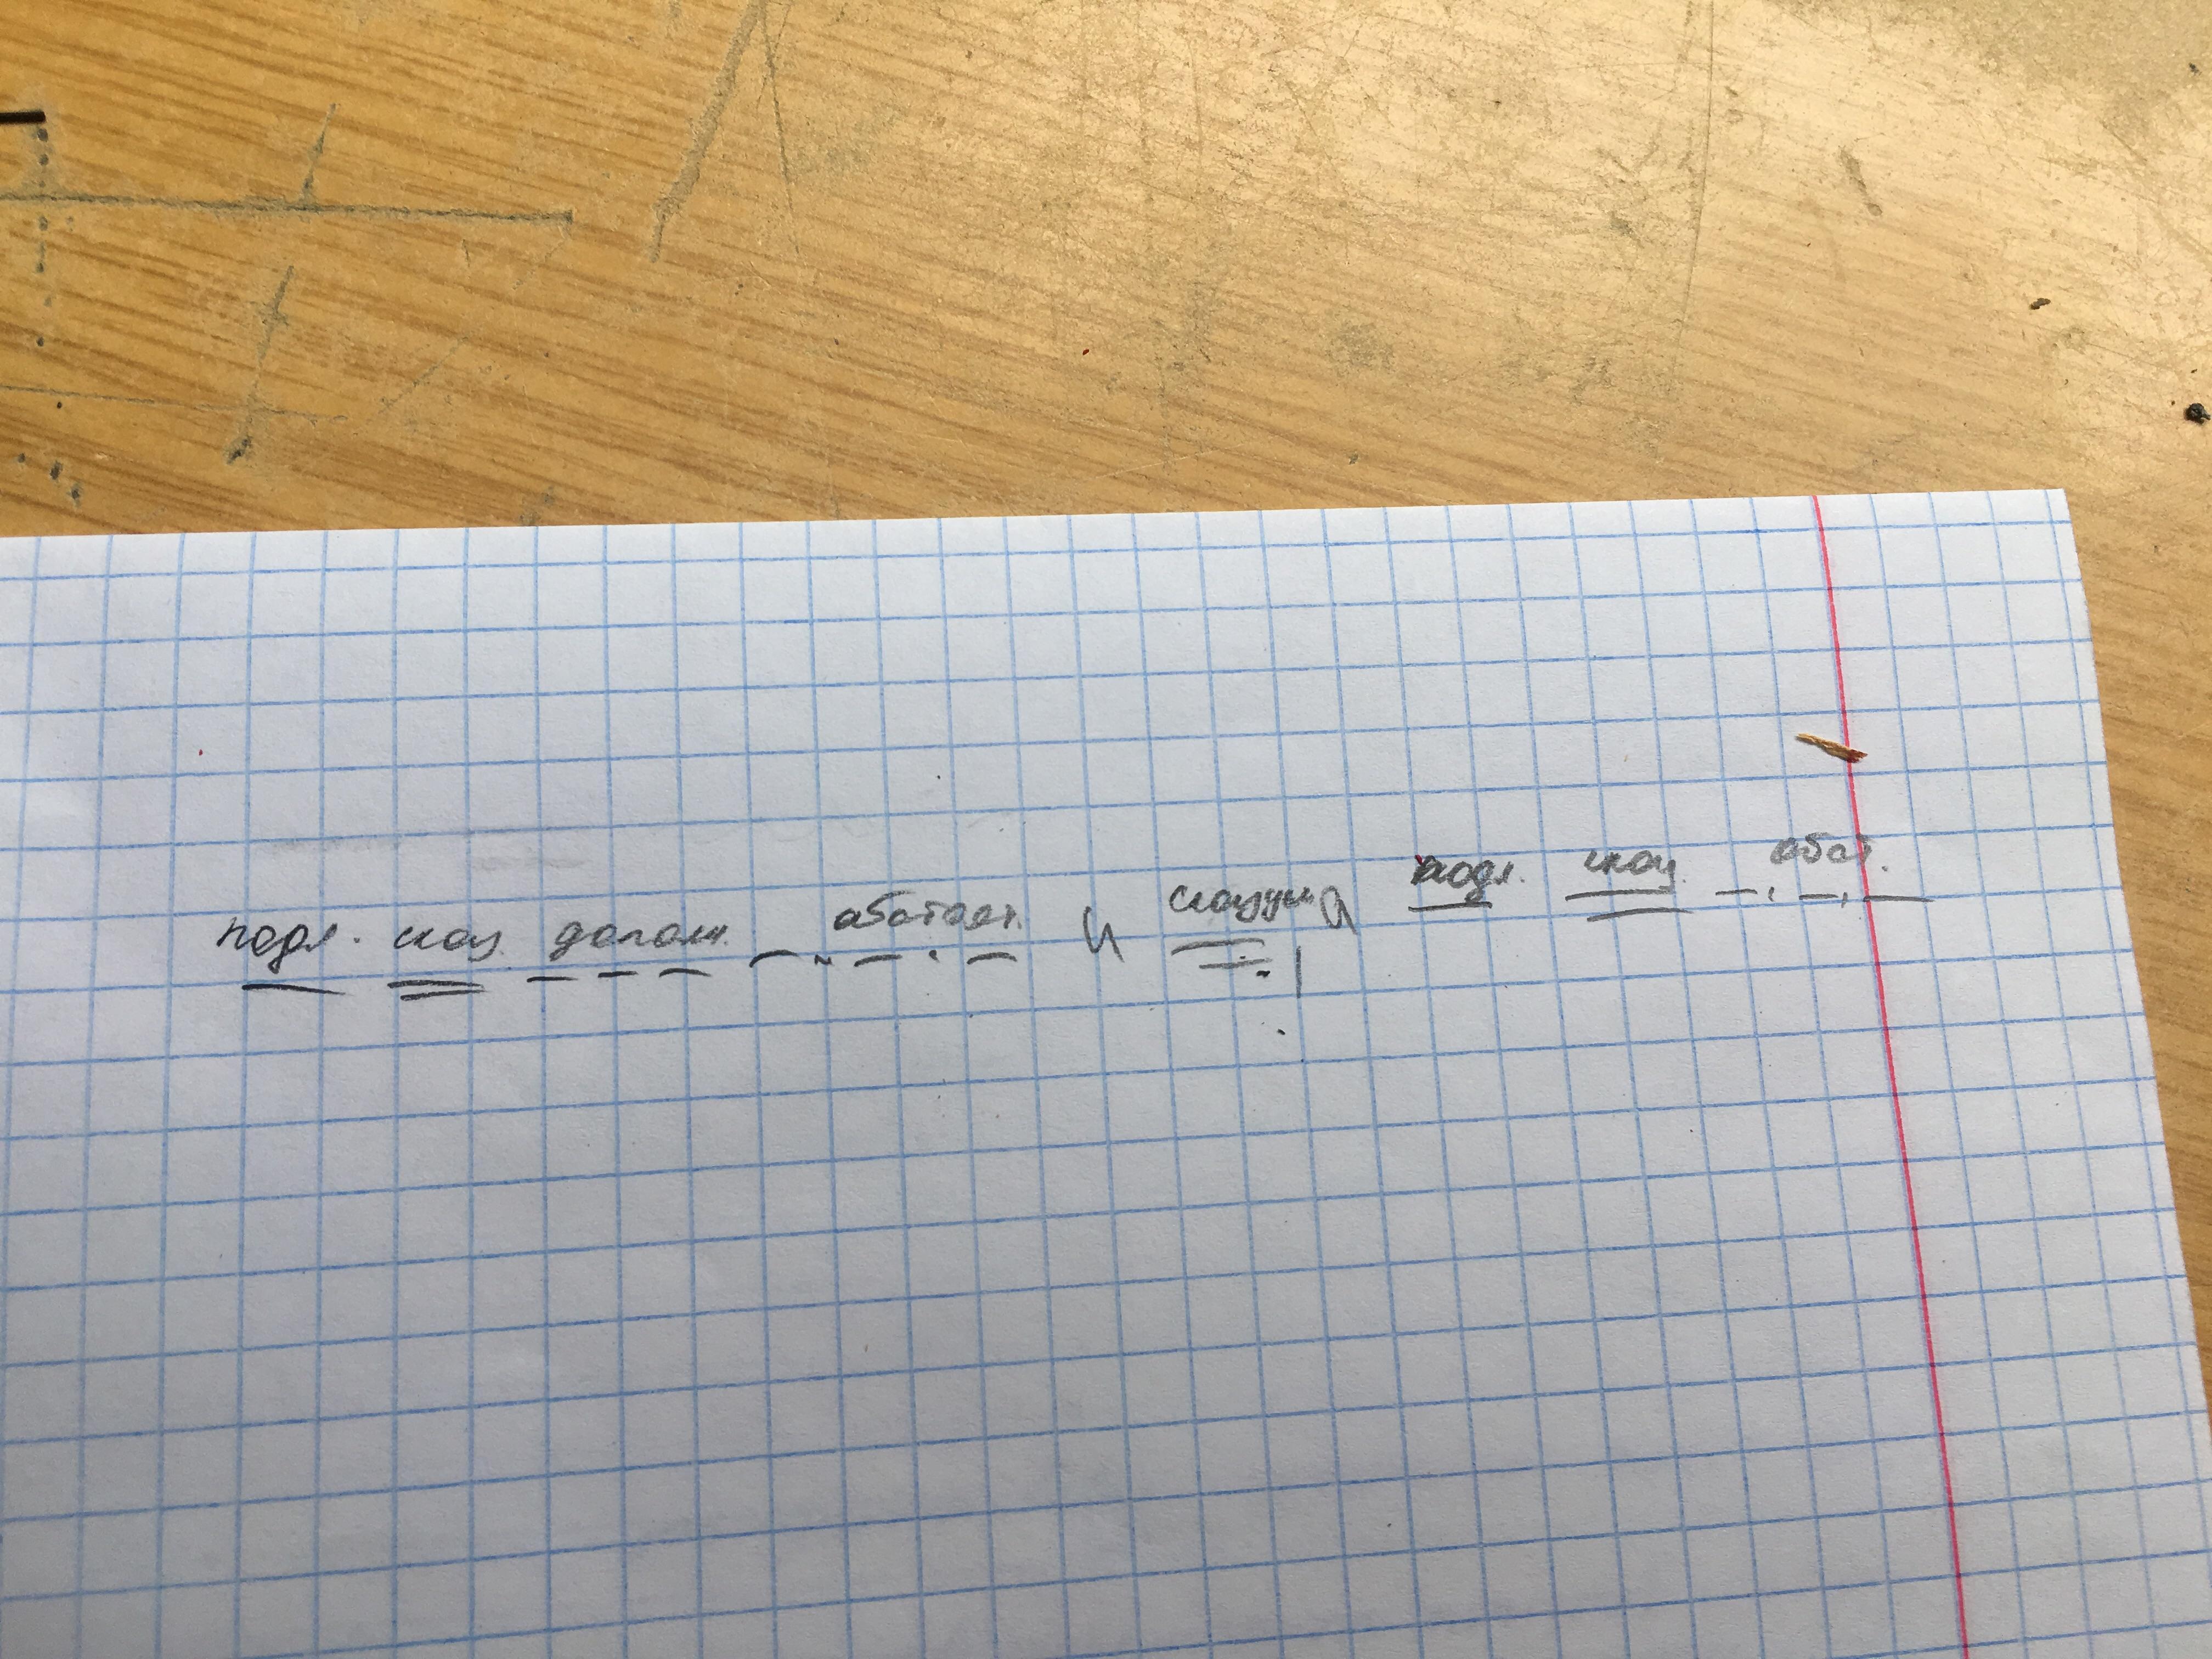 подл. сказ. дополн. абстоят. и сказуем а подл. сказ. обст.